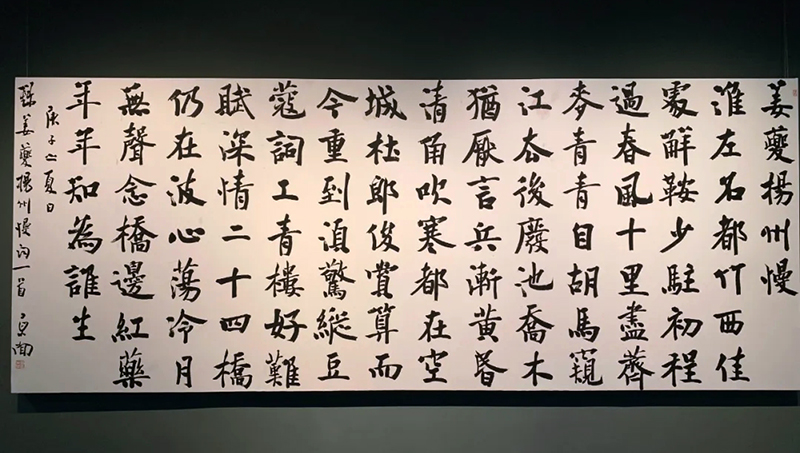 姜夔揚州慢
淮左名都竹西佳
處解鞍少駐初程
過春風十里盡薺
麥青青自胡馬窺
江去後廢池喬木
猶厭言兵漸黃昏
清角吹寒都在空
城杜郎俊賞算而
今重到須驚縱豆
蔻詞工青樓好難
賦深情二十四橋
仍在波心蕩冷月
無聲念橋邊紅藥
年年知為誰生
庚子之夏日
錄姜夔揚州慢詞一首